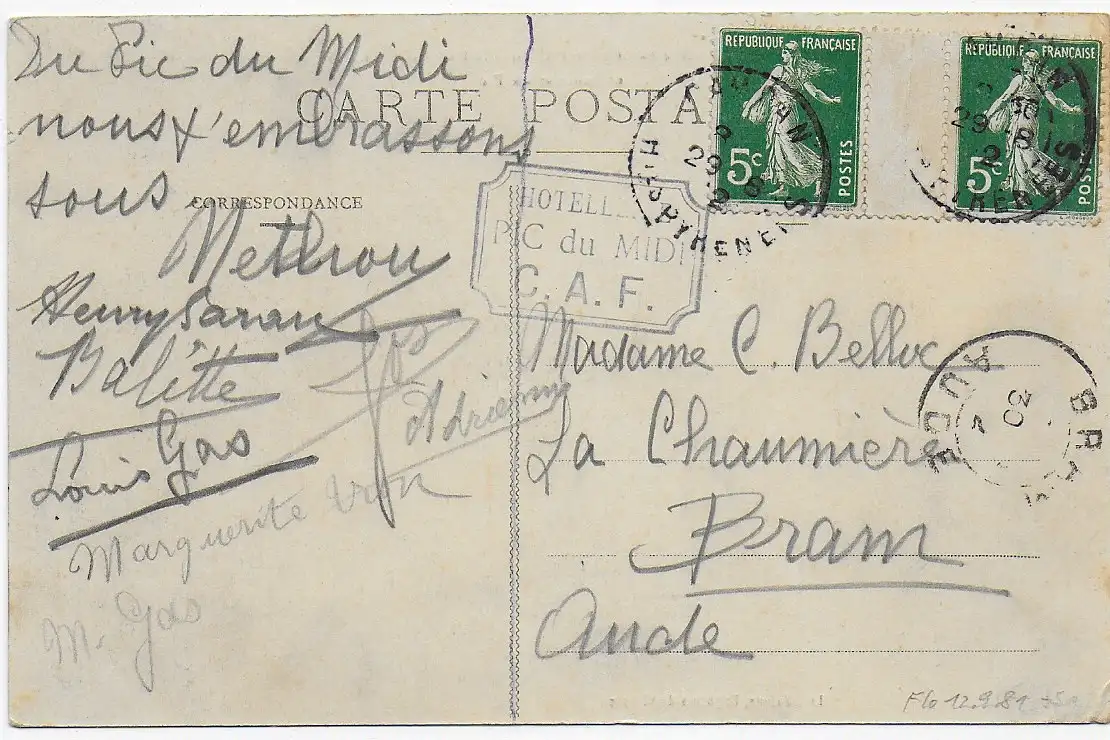 Du Pic du Midi
nous t'embrassons
tous
CARTE POSTA
CORRESPONDANCE
Methrou
Henry
Balitte
Louis Gas
Adrienne
Marguerite
M. Gas
HOTELL
PIC du MIDI
C. A. F.
REPUBLIQUE FRANÇAISE
5c
POSTES
REPUBLIQUE FRANÇAISE
5c
POSTES
29 8
HTES PYRENEES
29 8
PYRENEES
Madame C. Belloc
La Chaumière
Bram
Aude
AUDE
Flo 12.9.81